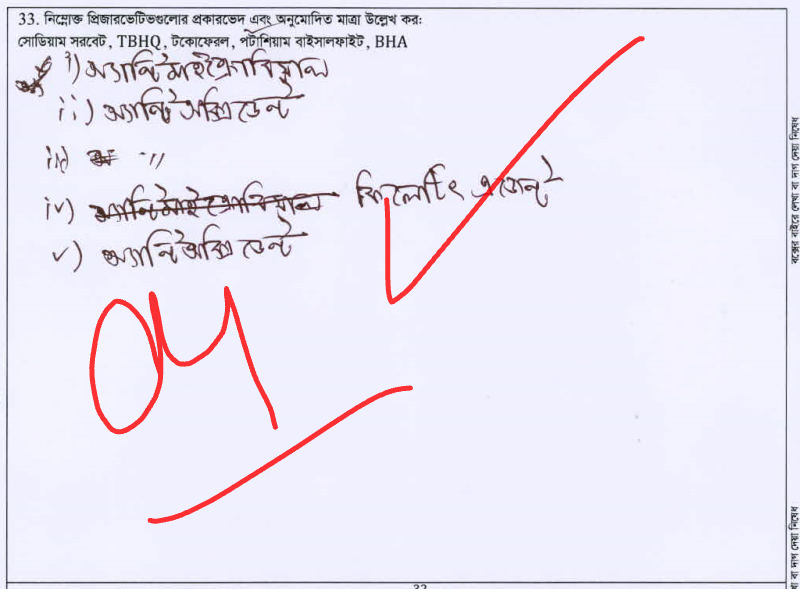 33. নিম্নোক্ত প্রিজারভেটিভগুলোর প্রকারভেদ এবং অনুমোদিত মাত্রা উল্লেখ কর:
সোডিয়াম সরবেট, TBHQ, টকোফেরল, পটাশিয়াম বাইসালফাইট, BHA
i) অ্যান্টিমাইক্রোবিয়াল
ii) অ্যান্টিঅক্সিডেন্ট
iii) "
iv) কিলেটিং এজেন্ট
v) অ্যান্টিঅক্সিডেন্ট
04
32
বক্সের বাইরে লেখা বা দাগ দেয়া নিষেধ
খা বা দাগ দেয়া নিষেধ